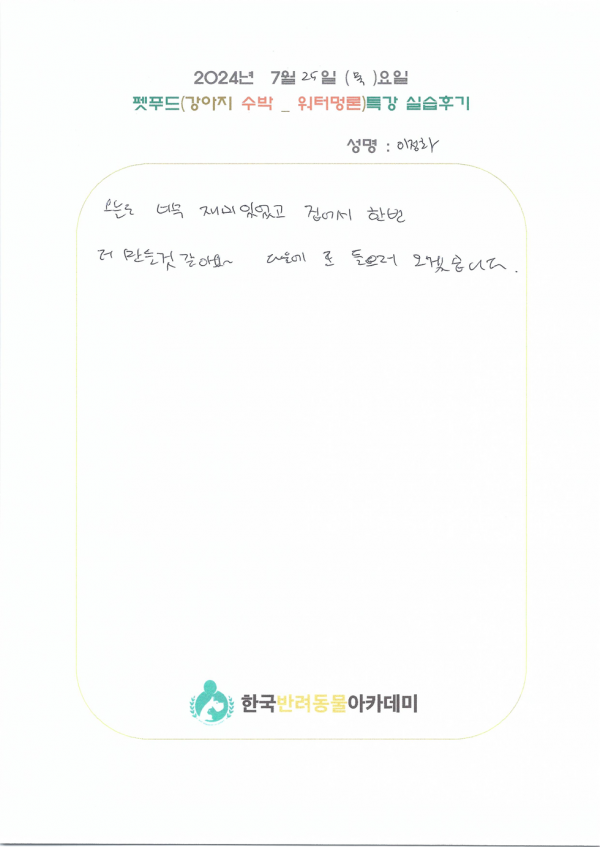 2024년 7월 25일 (목)요일
펫푸드(강아지 수박 _ 워터멍론)특강 실습후기
성명 : 이정화
오늘도 너무 재미있었고 집에서 한번
더 만들것 같아요~ 다음에 또 들으러 오겠습니다.
한국반려동물아카데미